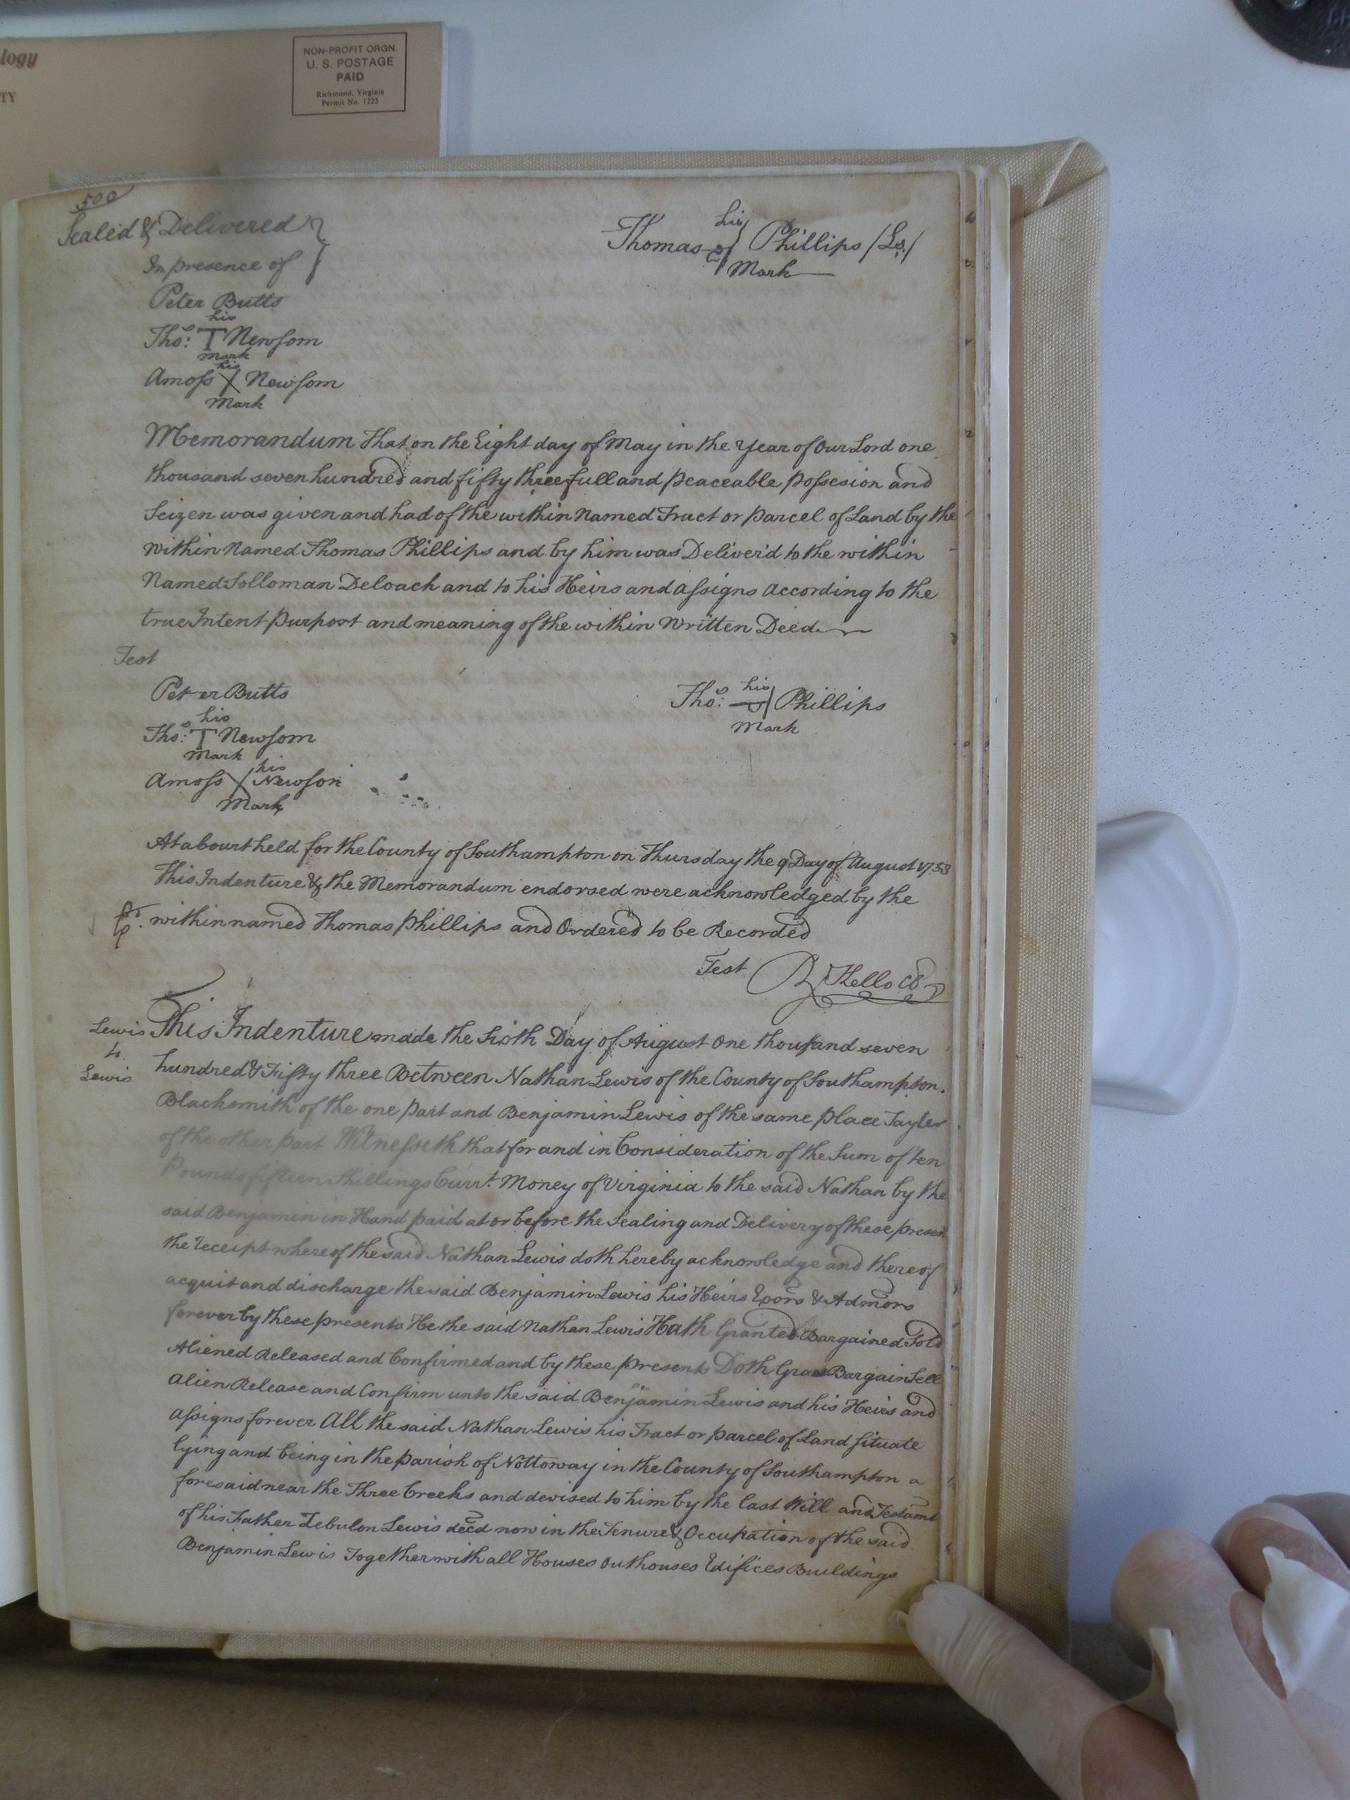 logy
TY
NON-PROFIT ORGN.
U. S. POSTAGE
PAID
Richmond, Virginia
Permit No. 1225
500
Sealed & Delivered
In presence of
his
Thomas Phillips (Ls)
Mark
Peter Butts
his
Tho.s T Newsom
mark
his
Amoss X Newsom
Mark
Memorandum That on the Eight day of May in the Year of Our Lord one
thousand seven hundred and fifty three full and peaceable Possesion and
Seizen was given and had of the within Named Tract or Parcel of Land by the
within Named Thomas Phillips and by him was Deliver'd to the within
Named Solloman Deloach and to his Heirs and assigns according to the
true Intent Purport and meaning of the within Written Deed
Test
Peter Butts
his
Tho.s Phillips
Mark
his
Tho.s T Newsom
Mark
his
Amoss X Newson
Mark
At a Court held for the County of Southampton on Thursday the 9 Day of August 1753
This Indenture & the Memorandum endorsed were acknowledged by the
within named Thomas Phillips and Ordered to be Recorded
Test R Kello CC
Lewis
to
Lewis
This Indenture made the Sixth Day of August One thousand seven
hundred & Fifty three Between Nathan Lewis of the County of Southampton
Blacksmith of the one part and Benjamin Lewis of the same place Tayler
of the other part Witnesseth that for and in Consideration of the Sum of ten
Pounds fifteen Shillings Curr.t Money of Virginia to the said Nathan by the
said Benjamin in Hand paid at or before the Sealing and Delivery of these presen
the receipt whereof the said Nathan Lewis doth hereby acknowledge and thereof
acquit and discharge the said Benjamin Lewis his Heirs Exors & Admors
forever by these presents He the said Nathan Lewis Hath Granted Bargained Sold
Aliened Released and Confirmed and by these presents Doth Grant Bargain Sell
Alien Release and Confirm unto the said Benjamin Lewis and his Heirs and
Assigns forever All the said Nathan Lewis his Tract or parcel of Land situate
lying and being in the parish of Nottoway in the County of Southampton a
foresaid near the Three Creeks and devised to him by the last Will and Testamt
of his Father Zebulon Lewis decd now in the Tenure & Occupation of the said
Benjamin Lewis Together with all Houses Outhouses Edifices Buildings